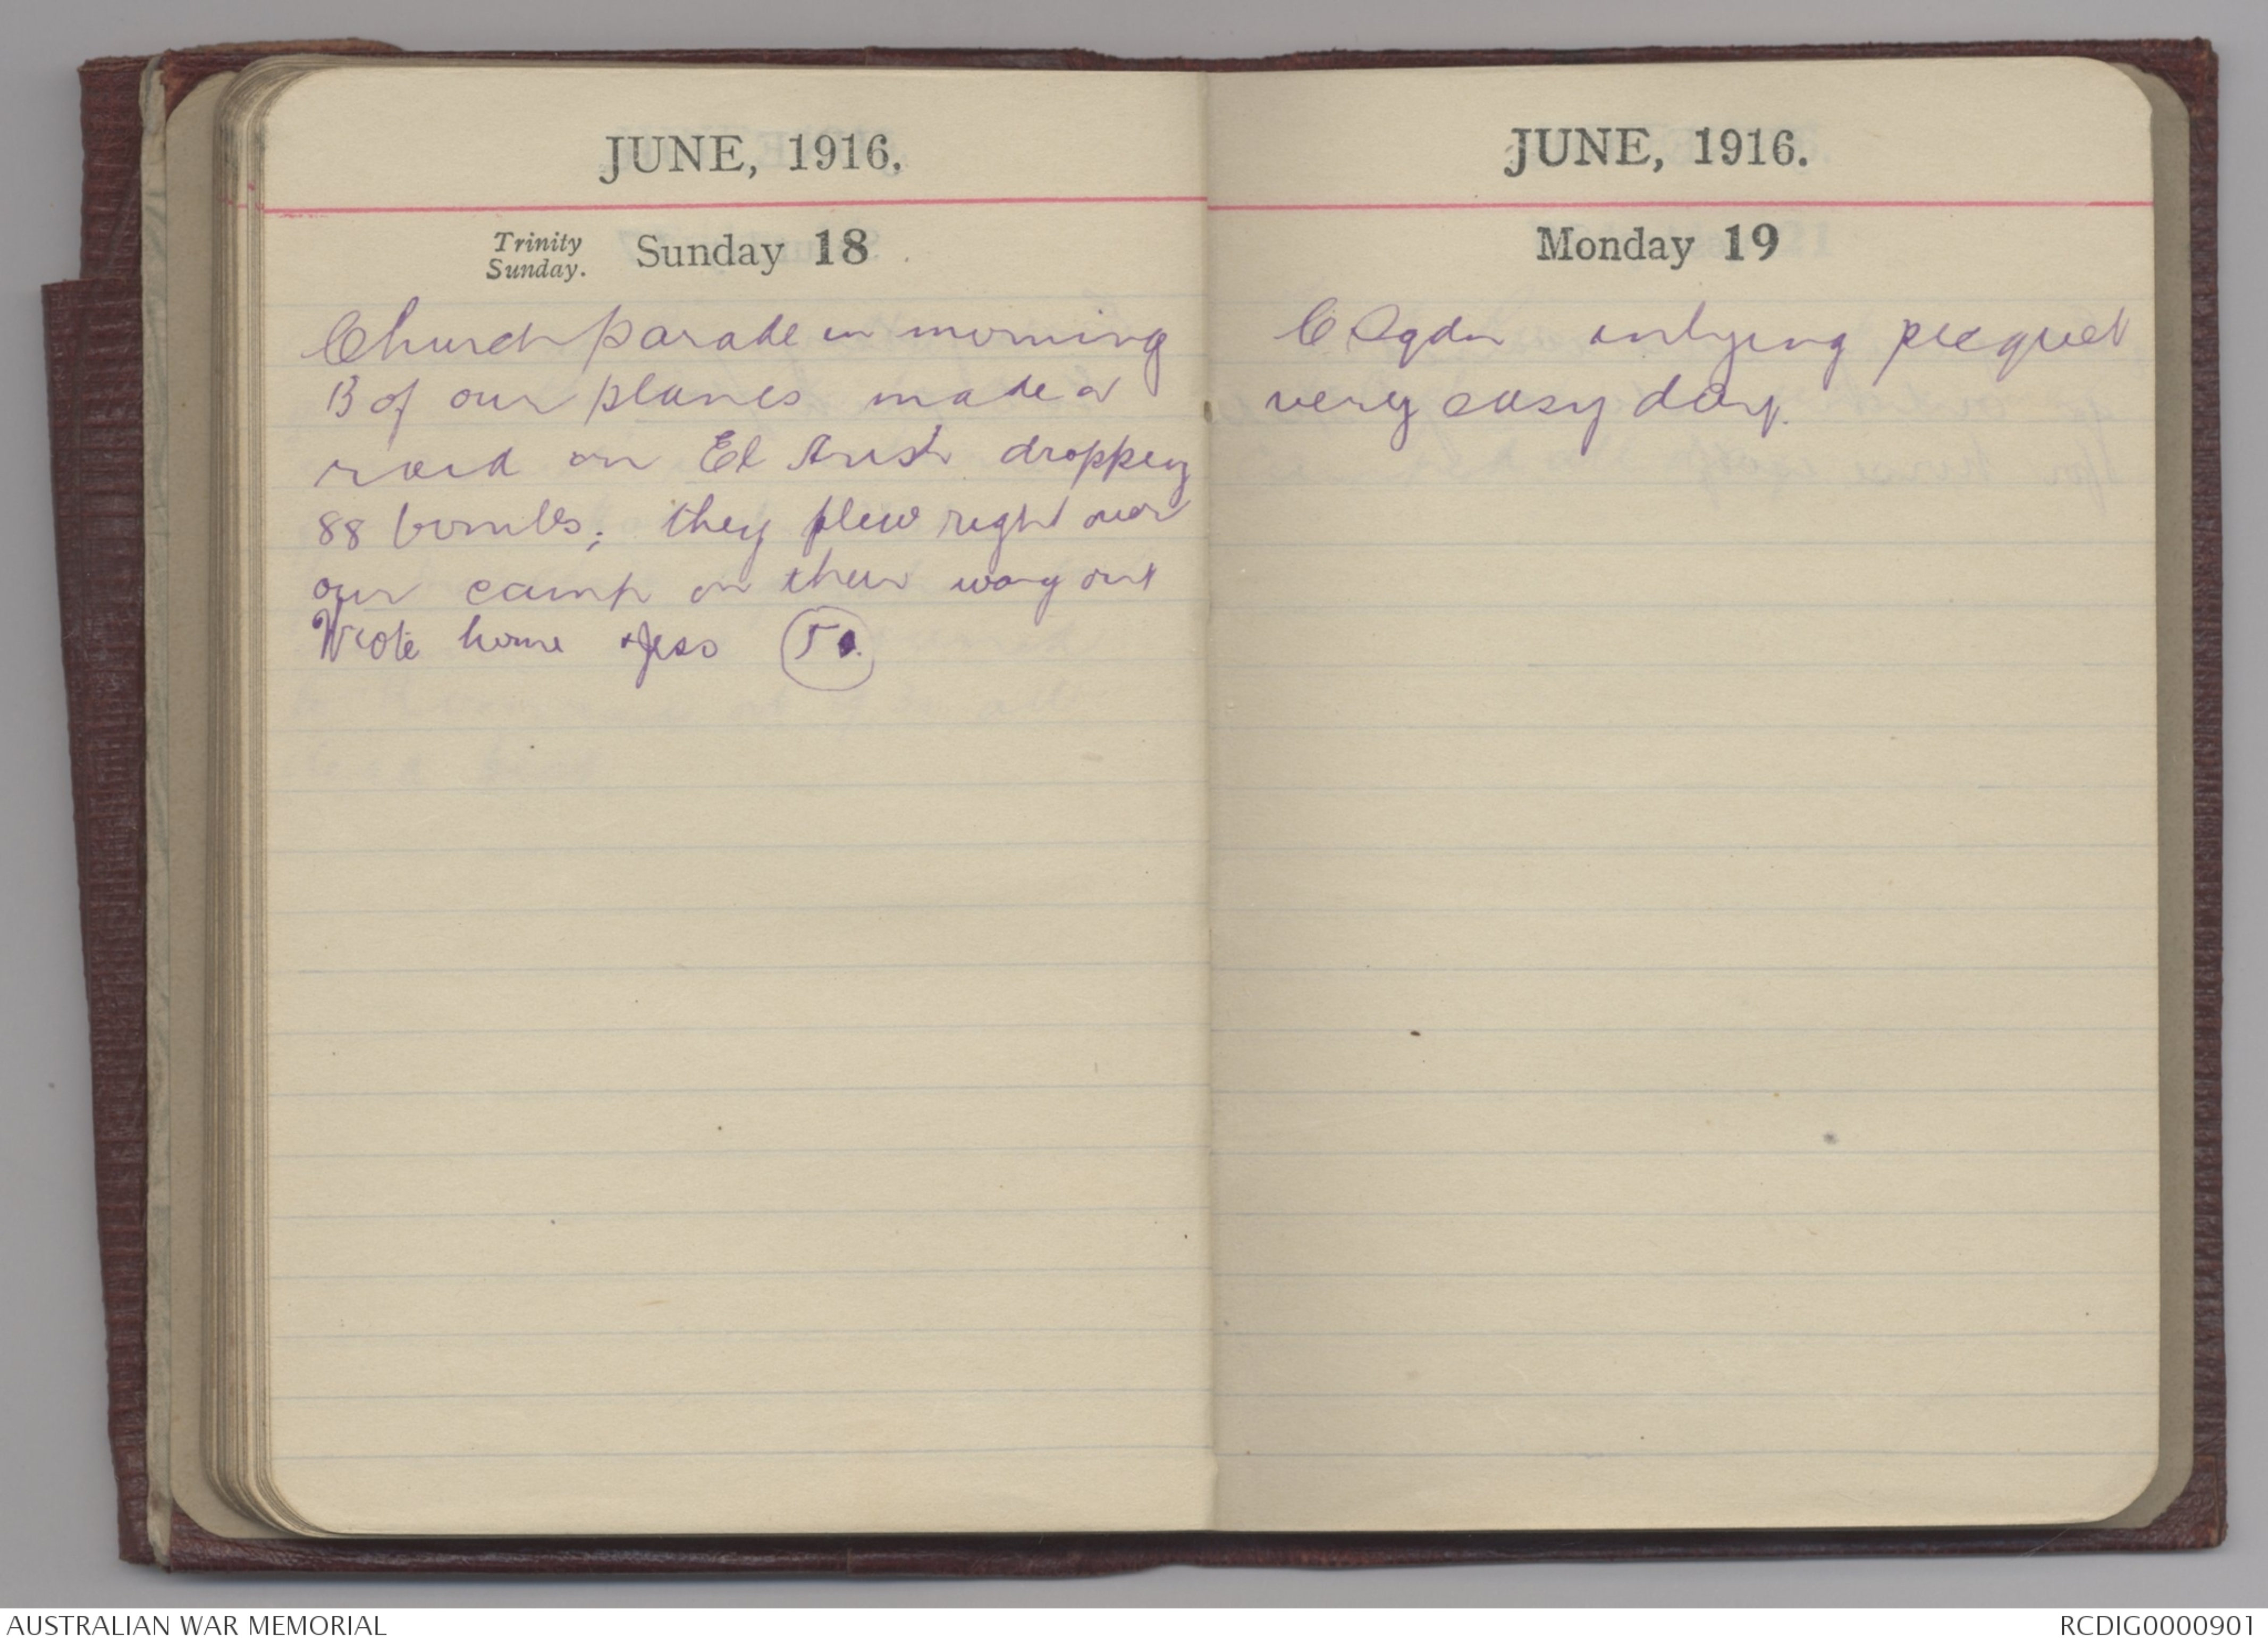 JUNE, 1916.
Trinity Sunday. Sunday 18
Church parade in morning
13 of our planes made a
raid on El Arish dropping
88 bombs; they flew right over
our camp on their way out
Wrote home + Jess
JUNE, 1916.
Monday 19
C Sqdn inlying picquet
very easy day.
AUSTRALIAN WAR MEMORIAL
RCDIG0000901